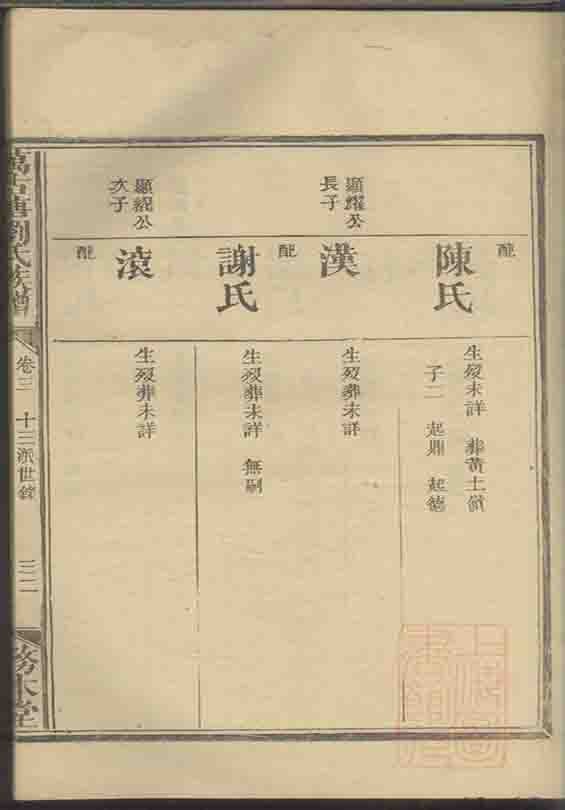 配
陳氏
生歿未詳 葬黃土嶺
子二 起鼎 起德
顯耀公
長子
漢
生歿葬未詳
配
謝氏
生歿葬未詳 無嗣
顯綂公
次子
滾
生歿葬未詳
配
萬古唐劉氏族譜
卷三 十三派世錄
三二
務本堂
上海圖書館藏